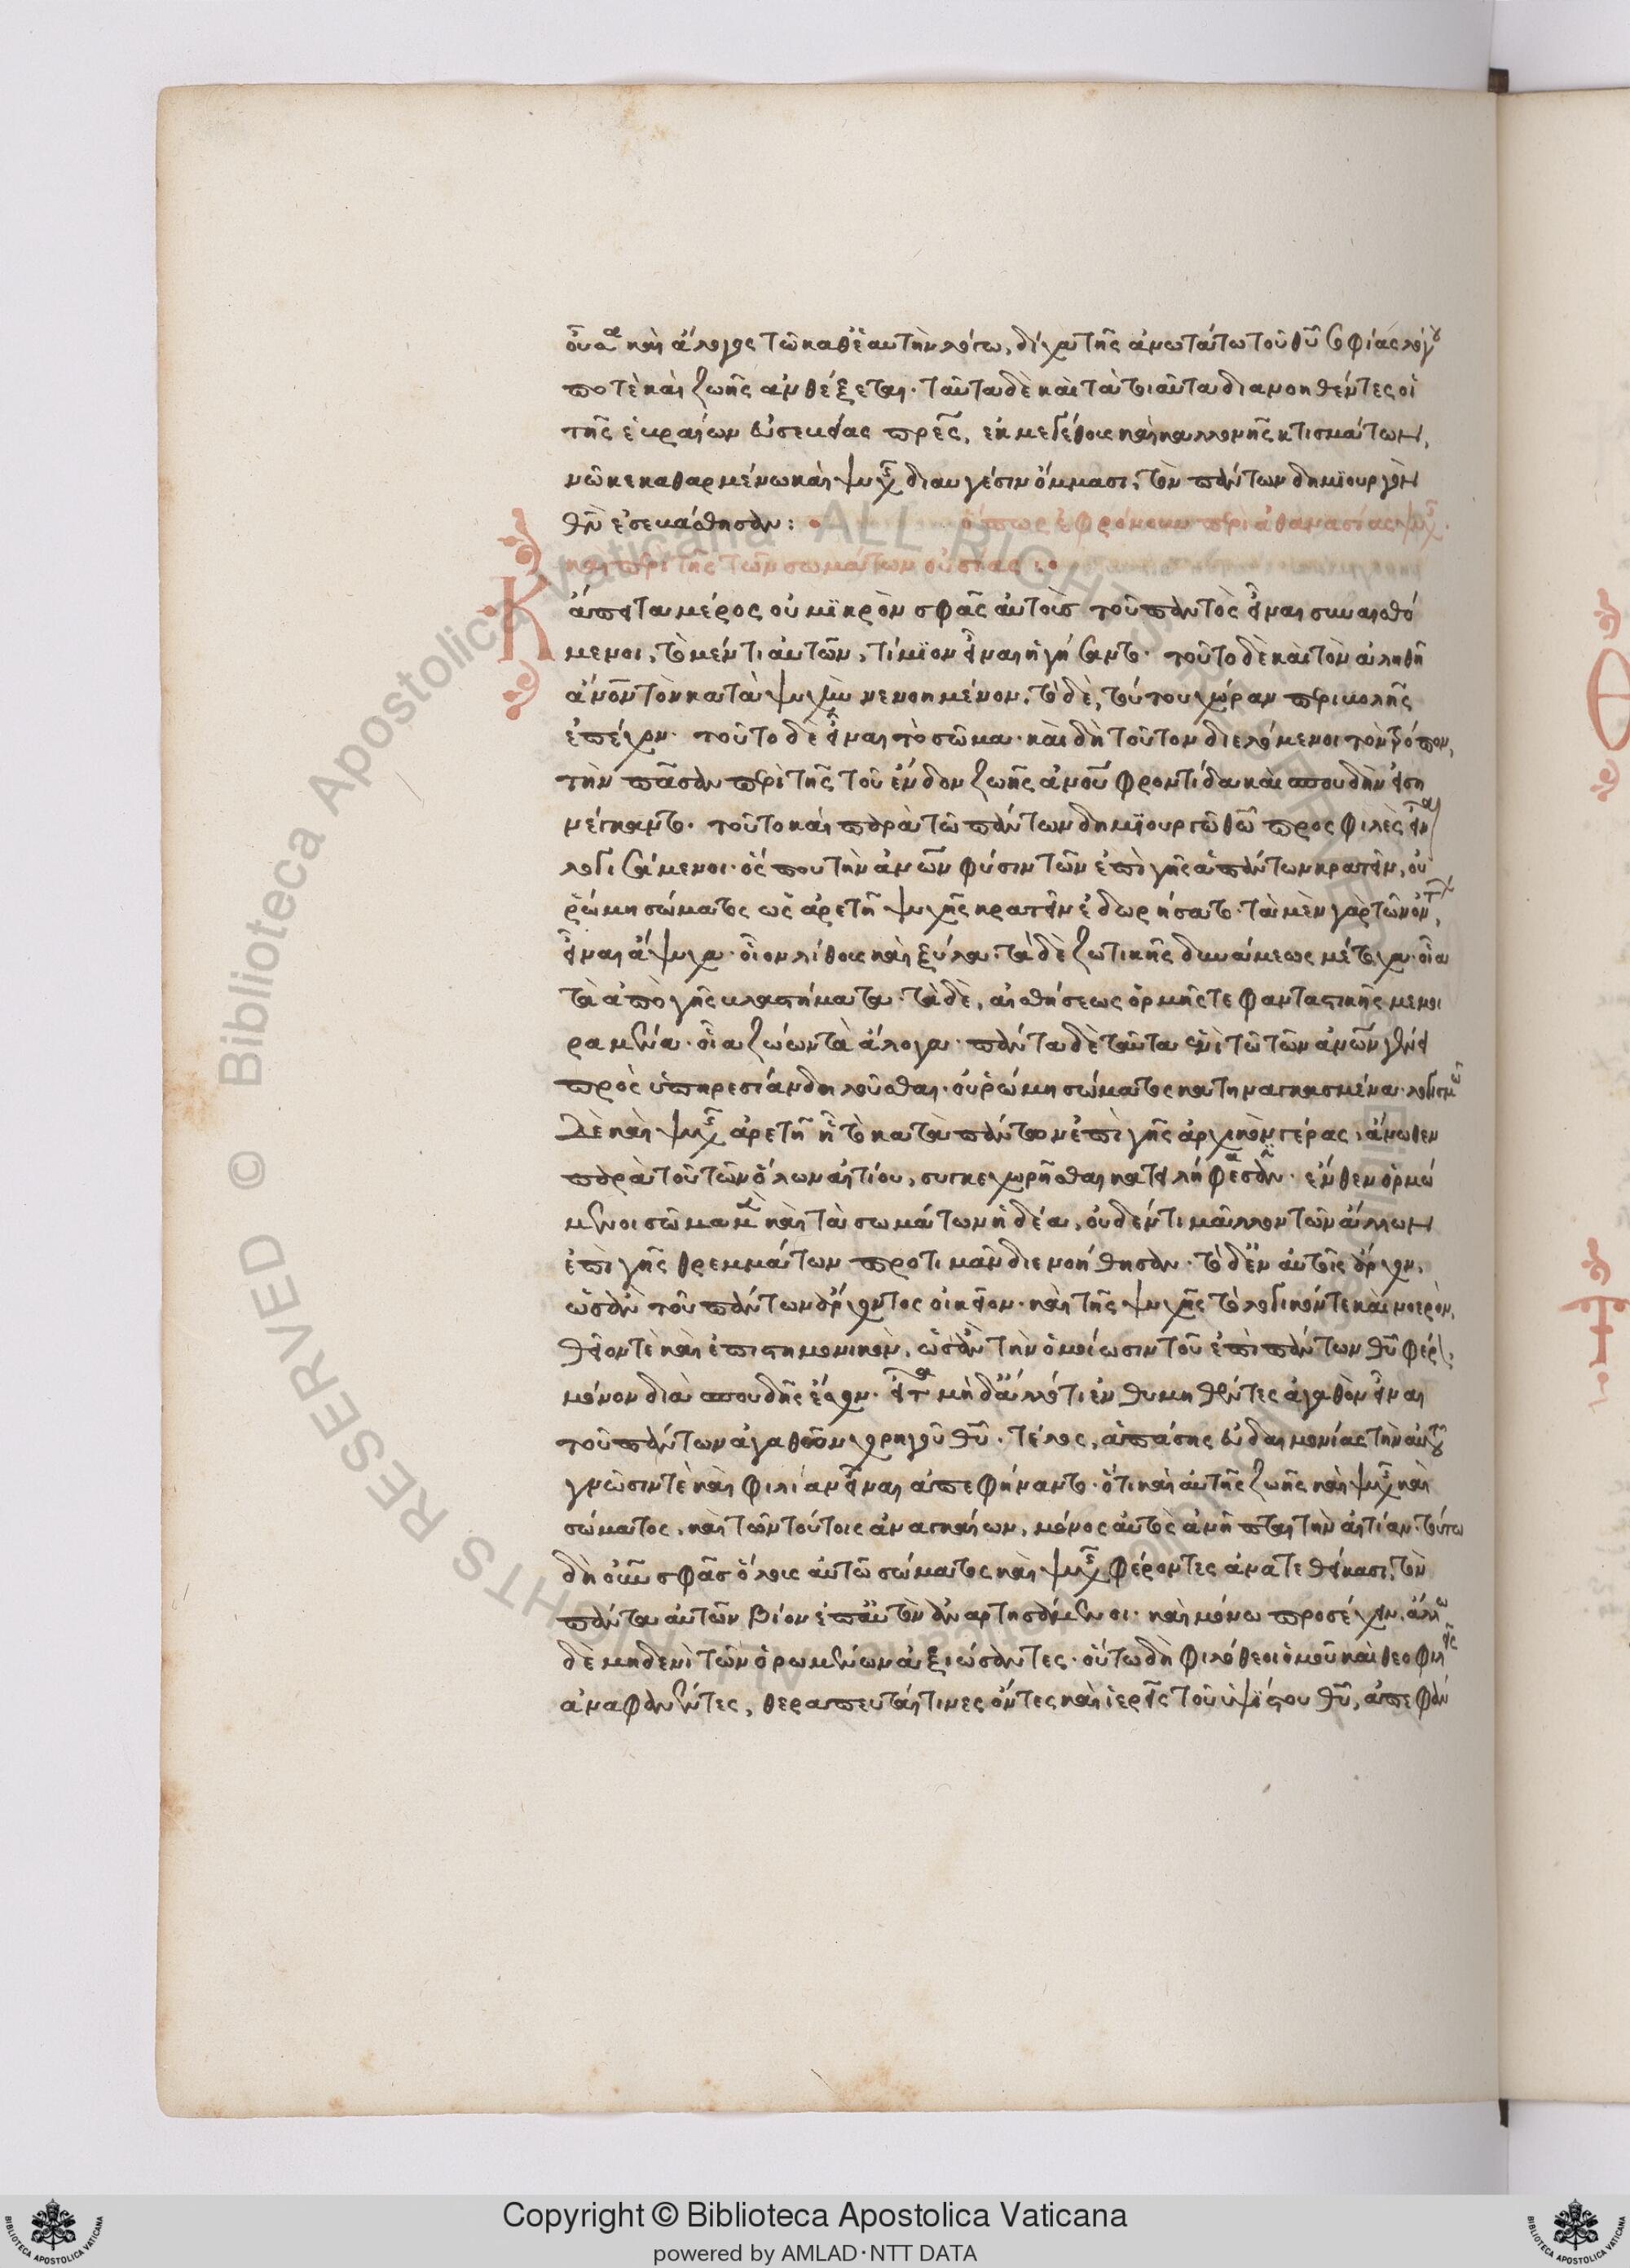 οὖσα καὶ ἄλογος τῶ καθ' ἑαυτὴν λόγω, δίχα τῆς ἀνωτάτω τοῦ θυ̅ σοφίας λόγου
ποτὲ καὶ ζωῆς ἀνθέξεται· ταῦτα δὲ καὶ τὰ τοιαῦτα διανοηθέντες οἱ
τῆς ἑβραίων εὐσεβείας πρ̅ε̅ς, ἐκ μεγέθους καὶ καλλονῆς κτισμάτων,
νῶ κεκαθαρμένω καὶ ψυχῆς διαυγέσιν ὄμμασι, τὸν πάντων δημϊουργὸν
θν̅ ἐσεβάσθησαν:
ὅπως ἐφρόνουν περὶ ἀθανασίας ψυχῆς
καὶ περὶ τῆς τῶν σωμάτων οὐσίας :
Κἄπειτα μέρος οὐ μϊκρὸν σφᾶς αὐτοὺς τοῦ παντὸς εἶναι συναισθό
μενοι, τὸ μέν τι αὐτῶν, τίμϊον εἶναι ἡγήσαντο· τοῦτο δὲ καὶ τὸν ἀληθῆ
ἄν̅ο̅ν τὸν κατὰ ψυχὴν νενοημένον, τὸ δὲ, τούτου χώραν περιβολῆς
ἐπέχειν· τοῦτο δὲ εἶναι τὸ σῶμα· καὶ δὴ τοῦτον διελόμενοι τὸν τρόπον,
τὴν πᾶσαν περὶ τῆς τοῦ ἔνδον ζωῆς ἀν̅ο̅υ φροντίδα καὶ σπουδὴν εἰση
νέγκαντο· τοῦτο καὶ παρὰ τῶ πάντων δημϊουργῶ θω̅ προσφιλὲς εἶναι
λογισάμενοι· ὅς που τὴν ἀν̅ω̅ν φύσιν τῶν ἐπὶ γῆς ἁπάντων κρατεῖν, οὐ
ῥώμη σώματος ὡς ἀρετῆ ψυχῆς κρατεῖν ἐδωρήσατο· τὰ μὲν γὰρ τῶν ὄντων,
εἶναι ἄψυχα· οἷον λίθους καὶ ξύλα· τὰ δὲ ζωτικῆς δυνάμεως μέτοχα· οἷα
τὰ ἀπὸ γῆς βλαστήματα· τὰ δὲ, αἰσθήσεως ὁρμῆς τε φανταστικῆς μεμοι
ραμένα· οἷα ζώων τὰ ἄλογα· πάντα δὲ ταῦτα ἑνὶ τῶ τῶν ἀν̅ω̅ν γένει
πρὸς ὑπηρεσίαν δηλοῦσθαι· οὐ ῥώμη σώματος κατηναγκασμένα· λογισμῶ
δὲ καὶ ψυχῆς ἀρετῆ ἧ τὸ κατὰ πάντων ἐπὶ γῆς ἀρχικὸν γέρας, ἄνωθεν
παρὰ τοῦ τῶν ὅλων αἰτίου, συγκεχωρῆσθαι κατειλήφεσαν· ἔνθεν ὁρμώ
μενοι σῶμα μὲν καὶ τὰ σωμάτων ἡδέα, οὐδέν τι μᾶλλον τῶν ἄλλων
ἐπὶ γῆς θρεμμάτων προτιμᾶν διενοήθησαν· τὸ δ' ἐν αὐτοῖς ἄρχον,
ὡσὰν τοῦ πάντων ἄρχοντος οἰκεῖον· καὶ τῆς ψυχῆς τὸ λογικόν τε καὶ νοερὸν,
θεῖόν τε καὶ ἐπιστημονικὸν, ὡσὰν τὴν ὁμοίωσιν τοῦ ἐπὶ πάντων θυ̅ φέρον,
μόνον διὰ σπουδῆς ἔσχον· εἶτα μηδ' ἄλλό τι ἐνθυμηθέντες ἀγαθὸν εἶναι
τοῦ πάντων ἀγαθῶν χορηγοῦ θυ̅· τέλος, ἁπάσης εὐδαιμονίας τὴν αὐτοῦ
γνῶσίν τε καὶ φιλίαν εἶναι ἀπεφήναντο· ὅτι καὶ αὐτῆς ζωῆς καὶ ψυχῆς καὶ
σώματος, καὶ τῶν τούτοις ἀναγκαίων, μόνος αὐτὸς ἀνῆπται τὴν αἰτίαν· τούτω
δὴ οὖν σφᾶς ὅλους αὐτῶ σώματος καὶ ψυχῆς φέροντες ἀνατεθείκασι, τὸν
πάντα αὐτῶν βίον ἐπ' αὐτὸν ἀναρτησάμενοι· καὶ μόνω προσέχειν, ἄλλω
δὲ μηδενὶ τῶν ὁρωμένων ἀξιώσαντες· οὕτω δὴ φιλόθεοι ὁμοῦ καὶ θεοφιλεῖς
ἀναφανέντες, θεραπευταί τινες ὄντες καὶ ἱερεῖς τοῦ ὑψίστου θυ̅, ἀπεφάν
Copyright © Biblioteca Apostolica Vaticana
powered by AMLAD·NTT DATA